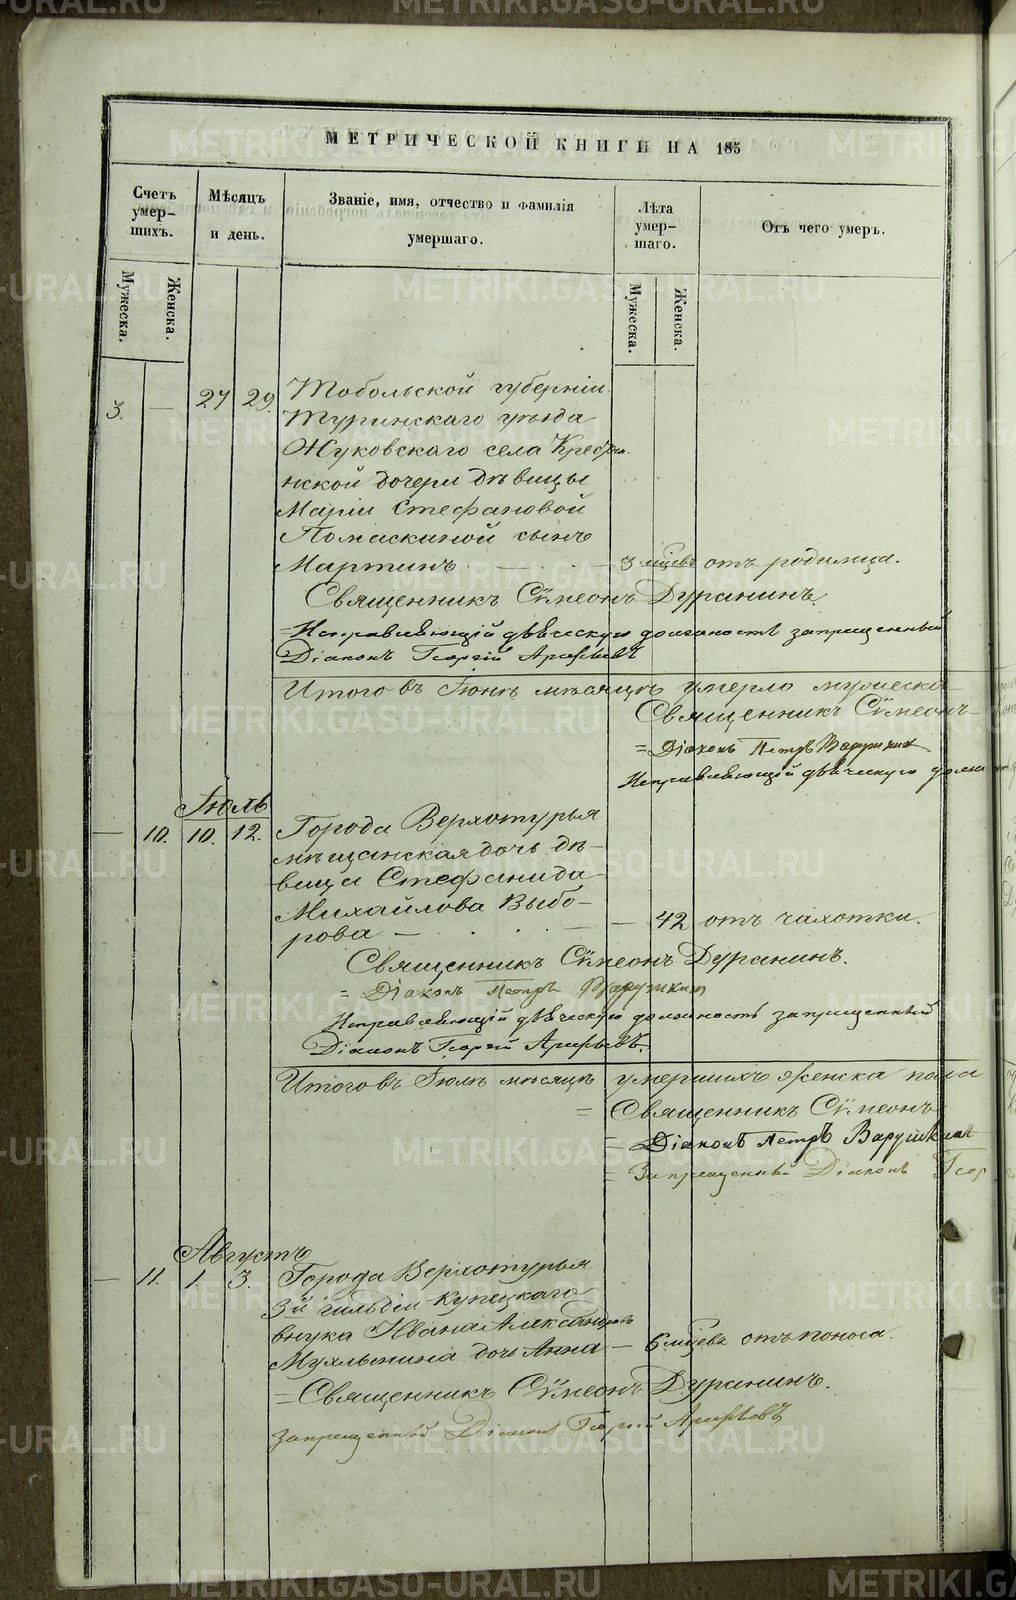 МЕТРИЧЕСКОЙ КНИГИ НА 185
Счетъ умер- шихъ.
Мѣсяцъ и день.
Званіе, имя, отчество и фамилія умершаго.
Лѣта умер- шаго.
Отъ чего умеръ.
Мужеска.
Женска.
Мужеска.
Женска.
3. — 27 29. Тобольской губерніи
Туринскаго уѣзда
Жуковскаго села Кресть-
нской дочери дѣвицы
Маріи Стефановой
сынъ
Мартинъ — 3 мѣсев отъ родимца.
Священникъ Сѵмеонъ Дуранинъ.
Исправляющій дьяческую должность запрещенный
Діаконъ Георгій Арефьевъ
Итого въ Іюнѣ мѣсяцѣ умерло мужеска
Священникъ Сѵмеонъ
= Діаконъ Петръ Варушкин
Исправляющій дьяческую долж
Іюль
— 10. 10. 12. Города Верхотурья
мѣщанская дочь дѣ-
вица Стефанида
Михайлова Выбо-
рова — — 42 отъ чахотки.
Священникъ Сѵмеонъ Дуранинъ.
= Діаконъ Петръ Варушкин
Исправляющій дьяческую должность запрещенный
Діаконъ Георгій Арефьевъ.
Итого въ Іюлѣ мѣсяцѣ умершихъ женска пола
= Священникъ Сѵмеонъ
= Діаконъ Петръ Варушкин
= Запрещенный Діаконъ Геор
Августъ
— 11. 1. 3. Города Верхотурья
3й гильдіи купецкаго
внука Ивана Александров
дочь Анна — 6 мѣсев отъ поноса.
= Священникъ Сѵмеонъ Дуранинъ.
запрещенный Діаконъ Георгій Арефьевъ
METRIKI.GASO-URAL.RU